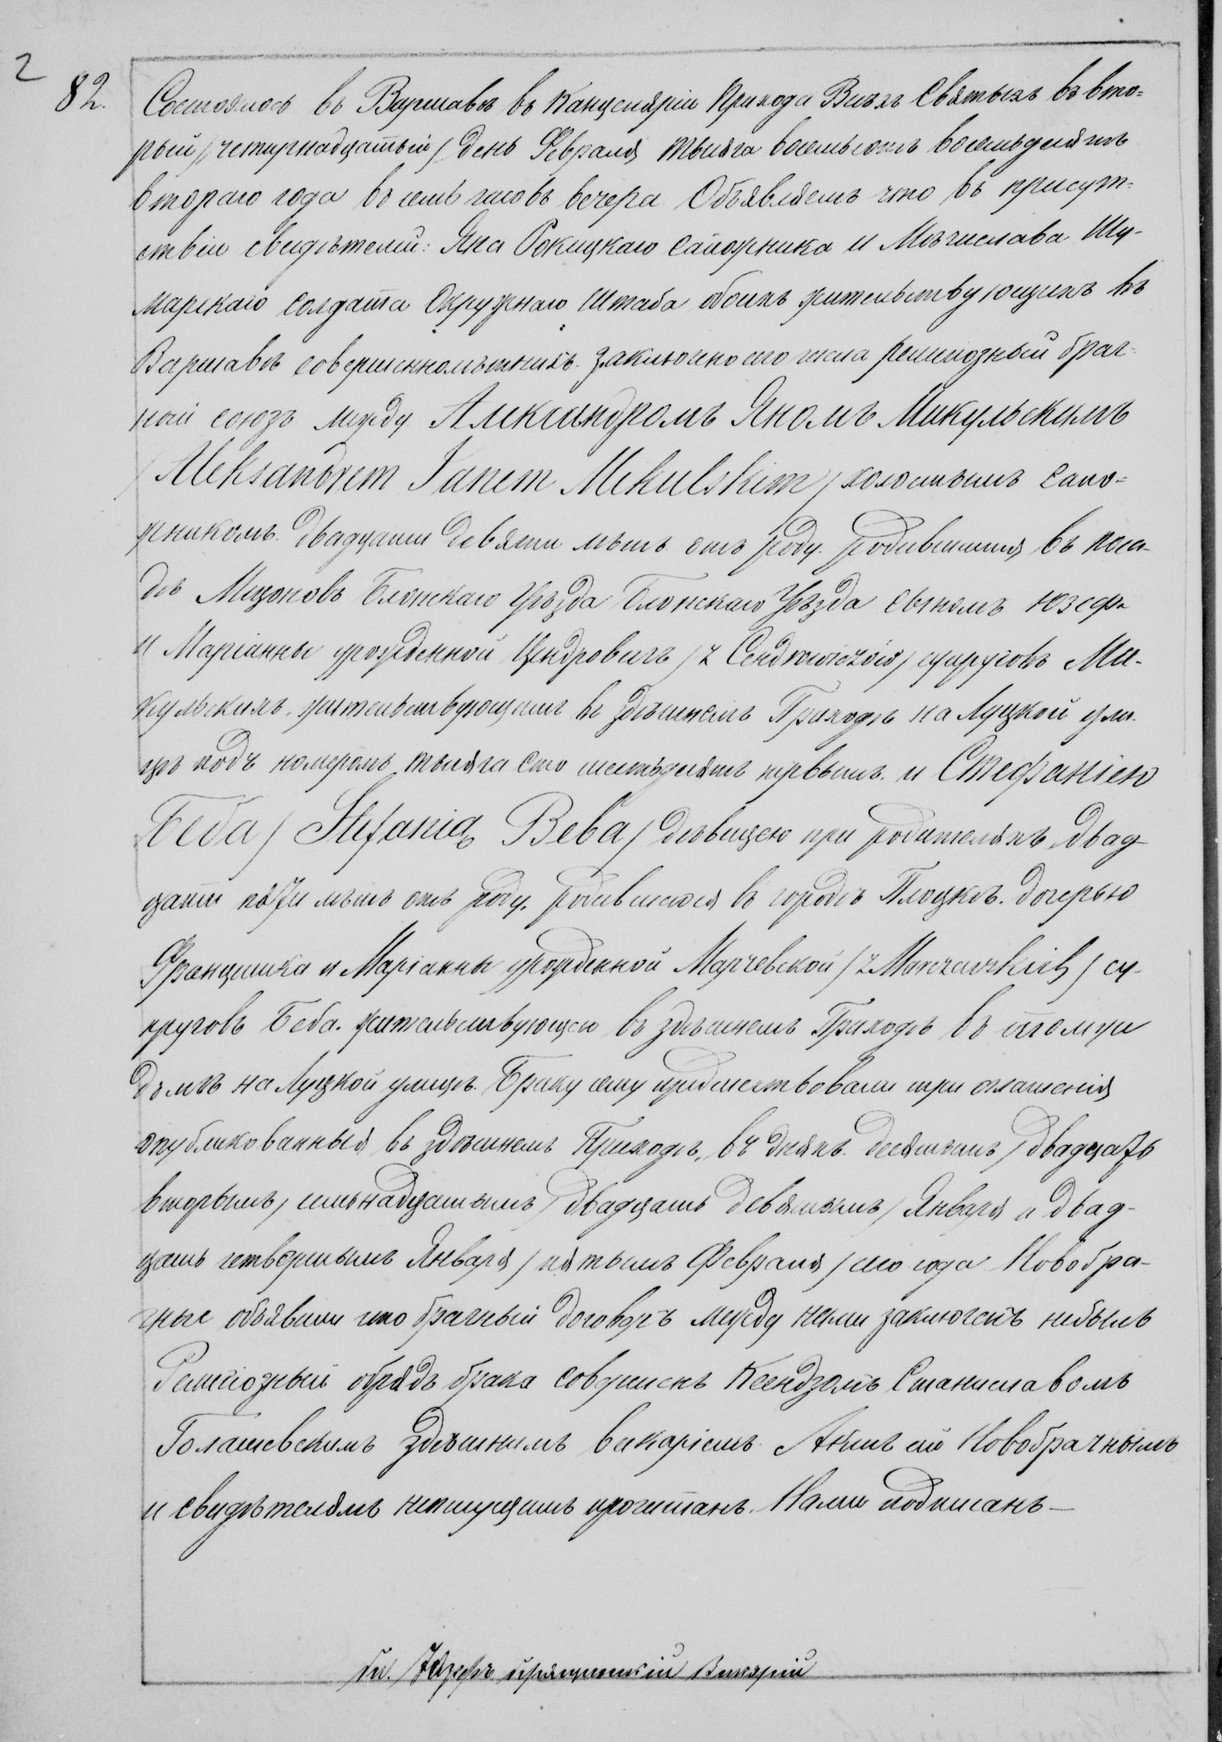 2
82. Состоялось въ Варшавѣ въ Канцеляріи Прихода Всѣхъ Святыхъ въ вто=
рый /четырнадцатый/ день Февраля тысяча восемьсотъ восемьдесятъ
втораго года въ семь часовъ вечера Объявляемъ что въ присут-
ствіи свидѣтелей: Яна Рокицкаго сапожника и Мѣчислава Шу-
марскаго солдата Окружнаго Штаба обоихъ жительствующихъ въ
Варшавѣ совершеннолѣтнихъ. заключено сего числа религіозный брач-
ный союзъ между Александромъ Яномъ Микульскимъ
/Aleksandrem Janem Mikulskim/ холостымъ сапо=
жникомъ. двадцати девяти лѣтъ отъ роду. родившимся въ поса-
дѣ Мщоновъ Блонскаго Уѣзда Блонскаго Уѣзда сыномъ Юзефа
и Маріанны урожденной Цендровичъ /z Cendrowiczów/ супруговъ Ми-
кульскихъ. жительствующимъ въ здѣшнемъ Приходѣ на Луцкой ули-
цѣ подъ номеромъ тысяча сто шестьдесятъ первымъ. и Стефаніею
Беба / Stefanią Beba / дѣвицею при родителяхъ двад-
цати пяти лѣтъ отъ роду. родившеюся въ городѣ Плоцкѣ. дочерью
Францишка и Маріанны урожденной Марчевской / z Marczewskich / су-
пруговъ Беба. жительствующею въ здѣшнемъ Приходѣ въ томже
домѣ на Луцкой улицѣ. Браку сему предшествовали три оглашенія
опубликованныя въ здѣшнемъ Приходѣ, въ дняхъ. десятымъ /двадцать
вторымъ/ семьнадцатымъ /двадцать девятымъ/ Января и двад-
цать четвертымъ Января /пятымъ Февраля/ сего года Новобра-
чные объявили что брачный договоръ между ними заключенъ небылъ
Религіозный обрядъ брака совершенъ Ксендзомъ Станиславомъ
Голашевскимъ здѣшнимъ викаріемъ. Актъ сей Новобрачнымъ
и свидѣтелямъ неписущимъ прочитанъ. Нами подписанъ—
Викарій